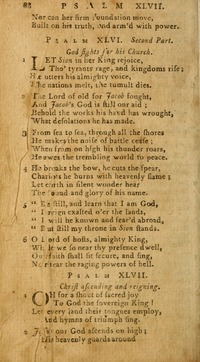 82 PSALM XLVII.
Nor can her firm foundation move,
Built on his truth, and arm'd with power.
PSALM XLVI. Second Part.
God fights for his Church.
1 LET Sion in her King rejoice,
Tho' tyrants rage, and kingdoms rise;
He utters his almighty voice,
The nations melt, the tumult dies.
2 The Lord of old for Jacob fought,
And Jacob's God is still our aid;
Behold the works his hand has wrought,
What desolations he has made.
3 From sea to sea, through all the shores
He makes the noise of battle cease;
When from on high his thunder roars,
He awes the trembling world to peace.
4 He breaks the bow, he cuts the spear,
Chariots he burns with heavenly flame;
Let earth in silent wonder hear
The sound and glory of his name.
5 "Be still, and learn that I am God,
"I reign exalted o'er the lands,
"I will be known and fear'd abroad,
"But still my throne in Sion stands.
6 O Lord of hosts, almighty King,
While we so near thy presence dwell,
Our faith shall sit secure, and sing,
Nor fear the raging powers of hell.
PSALM XLVII.
Christ ascending and reigning.
1 OH for a shout of sacred joy
To God the sovereign King!
Let every land their tongues employ,
And hymns of triumph sing.
2 Jesus our God ascends on high;
His heavenly guards around